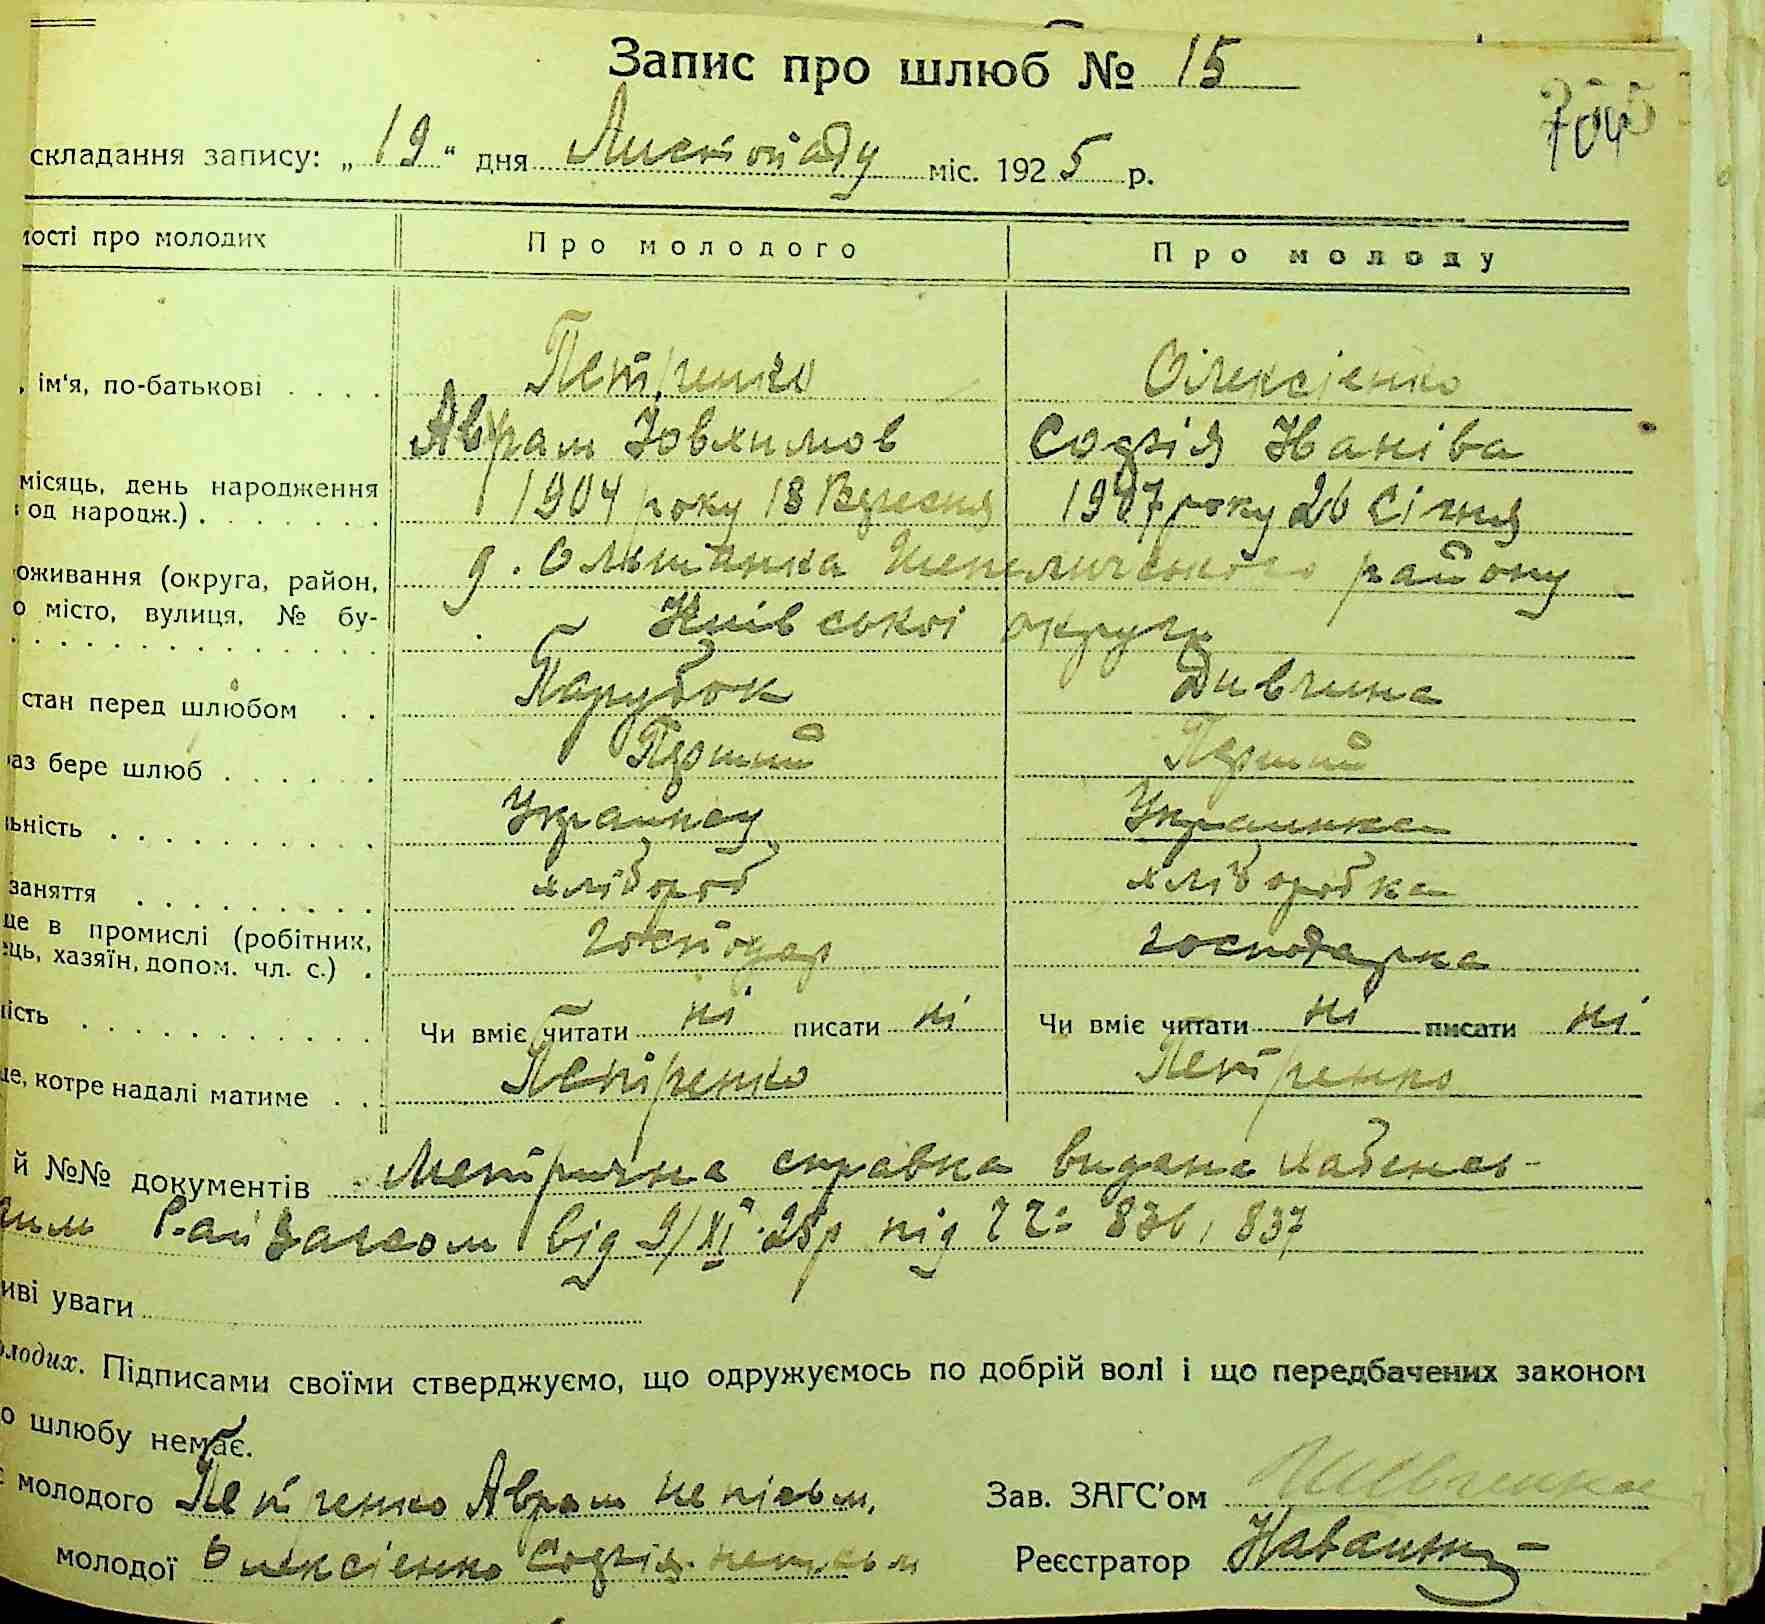 Запис про шлюб № 15
704
складання запису: „ 19 “ дня Листопаду міс. 1925 р.
мості про молодих Про молодого Про молоду
, ім'я, по-батькові . . . . Петренко Олексієнко
Аврам Ювхимов Софія Иванівa
місяць, день народження
од народж.) . . . . . . . 1904 року 18 Вересня 1907 року 26 Січня
оживання (округа, район, д. Ольшанка району
о місто, вулиця, № бу- Київської округи
стан перед шлюбом . . Парубок Дивчина
аз бере шлюб . . . . . . Перший Перший
ьність . . . . . . . . . . Украинец Украинка
заняття . . . . . . . . . хлібороб хліборобка
це в промислі (робітник,
ець, хазяїн, допом. чл. с.) . господар господарка
ність . . . . . . . . . . . Чи вміє читати ні писати ні Чи вміє читати ні писати ні
ще, котре надалі матиме . . Петренко Петренко
й №№ документів Метрична справка видана Хабенсь-
ким Райзагсом від 9/XI 25р під 836, 837
иві уваги
олодих. Підписами своїми стверджуємо, що одружуємось по добрій волі і що передбачених законом
о шлюбу немає.
молодого Петренко Аврам неписьм.
Зав. ЗАГС'ом Шевченко
молодої Олексієнко Софія неписьм
Реєстратор